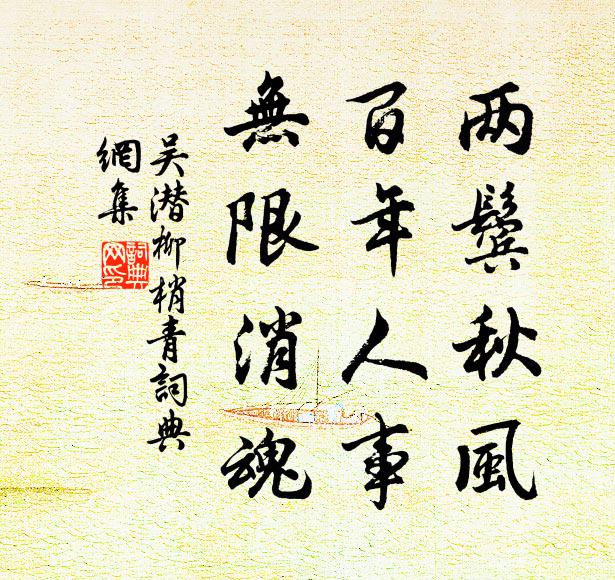 两鬓秋風
百年人事
無限消魂
吴潜柳梢青詞典
網集
詞典
网印